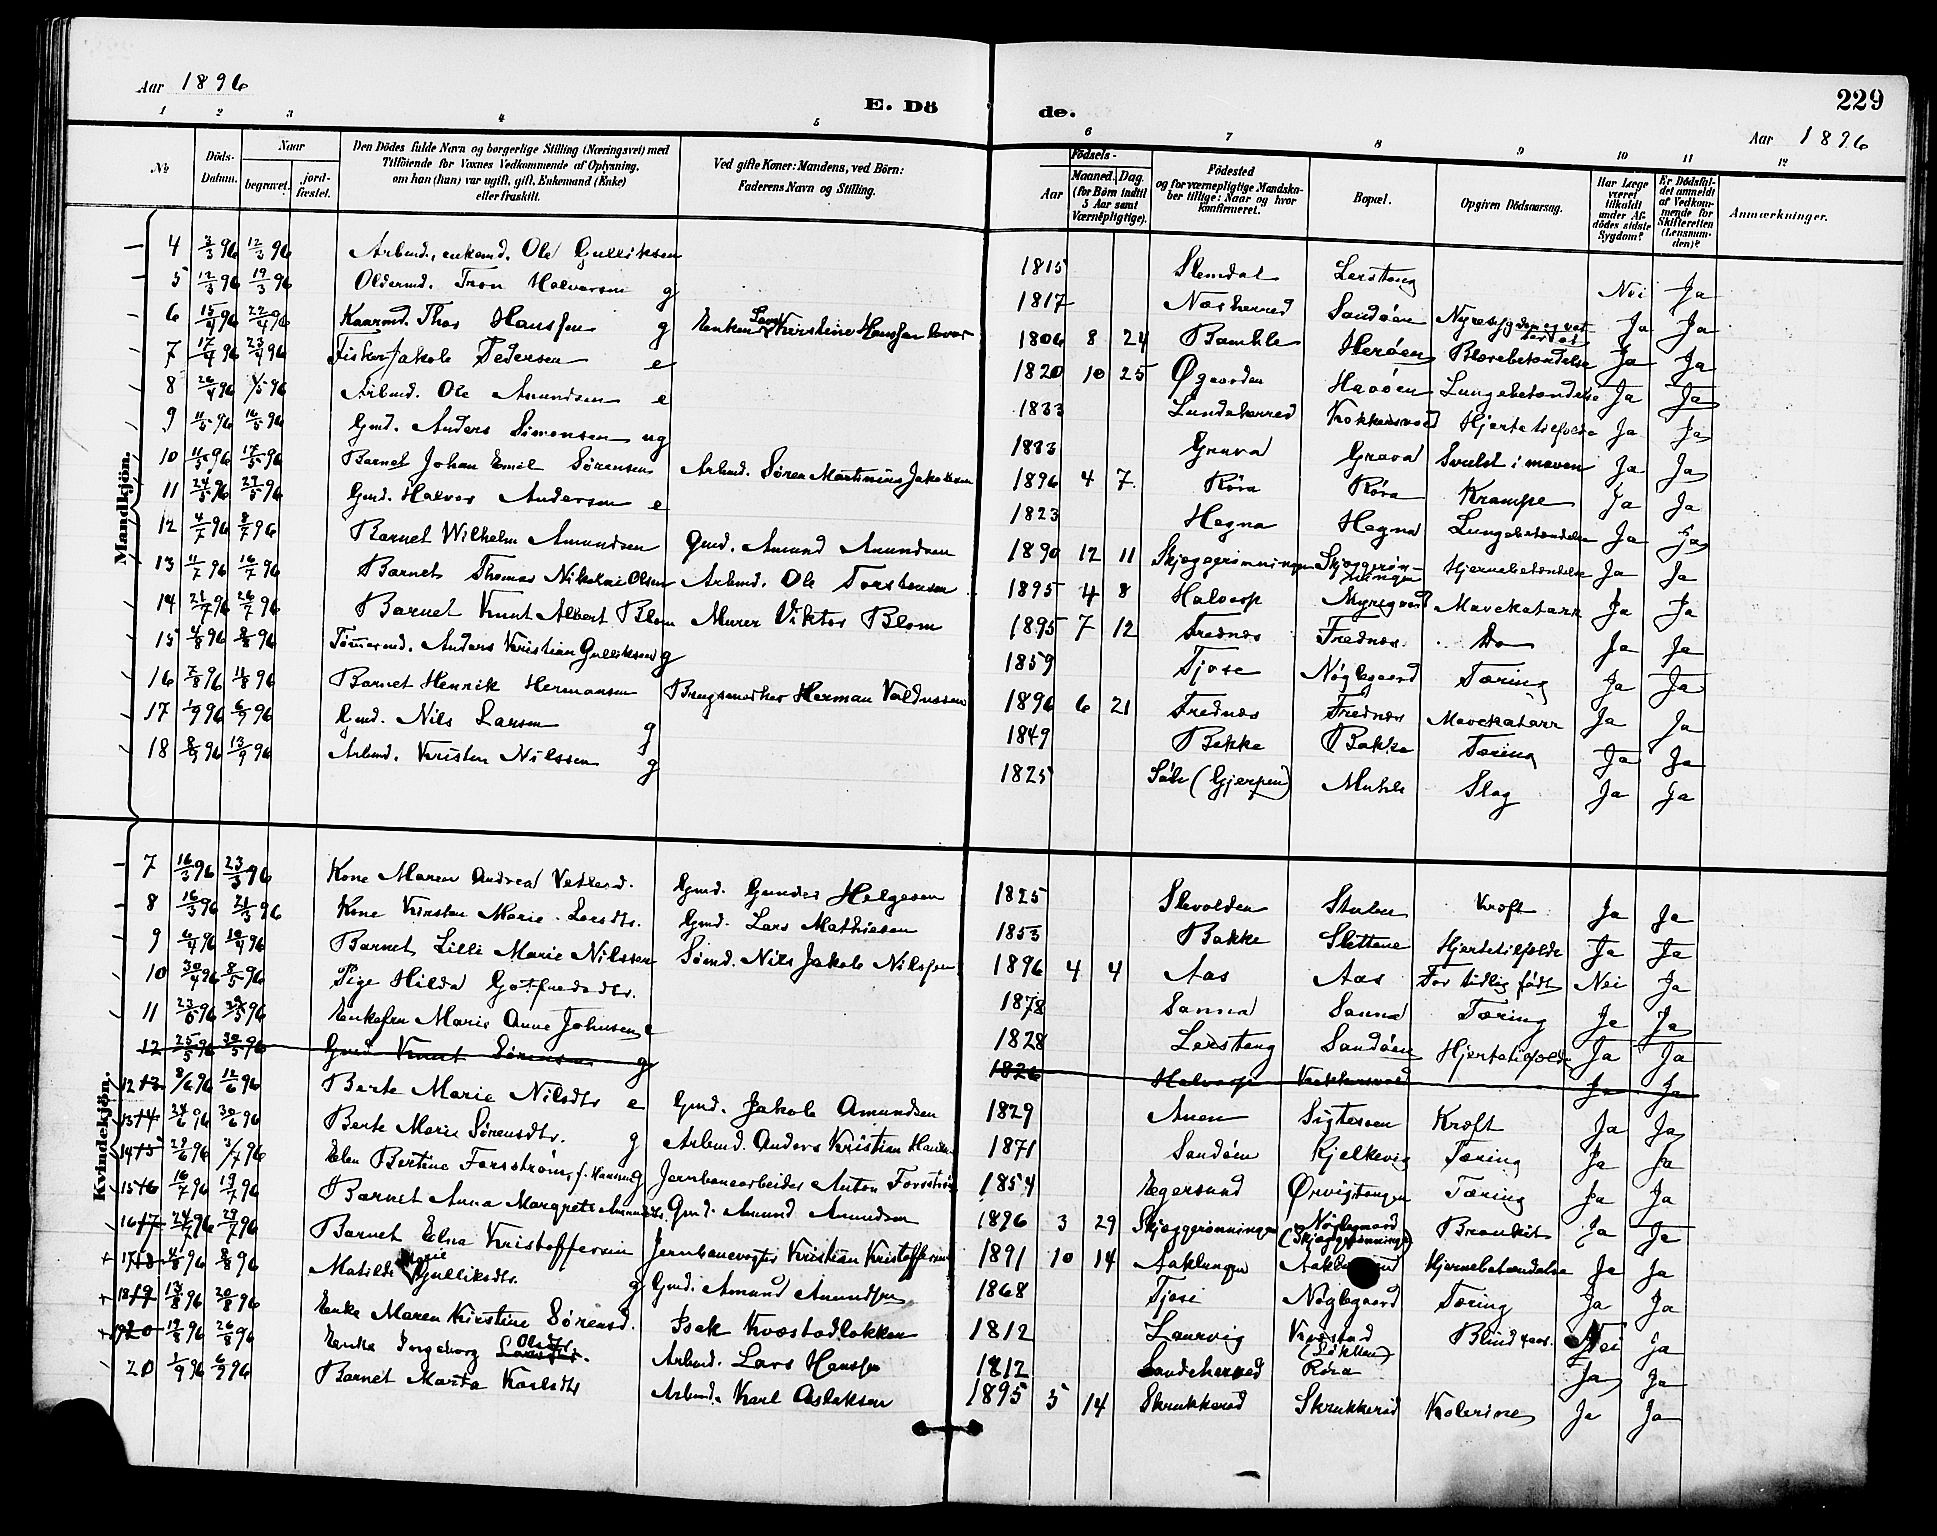 Aar 1896
E. Dö de.
229
Aar 1896
1 2 3 4 5 6 7 8 9 10 11 12
No
Döds-Datum.
Naar
begravet.
jord-fæstet.
Den Dödes fulde Navn og borgerlige Stilling (Næringsvei) med
Tilföiende for Voxnes Vedkommende af Oplysning,
om han (hun) var ugift, gift, Enkemand (Enke)
eller fraskilt.
Ved gifte Koner: Mandens, ved Börn:
Faderens Navn og Stilling.
Födsels-
Aar
Maaned. Dag.
(for Börn indtil 5 Aar samt Værnepligtige).
Födested
og for værnepligtige Mandskaber tillige: Naar og hvor konfirmeret.
Bopæl.
Opgiven Dödsaarsag.
Har Læge været tilkaldt under Afdödes sidste Sygdom?
Er Dödsfaldet anmeldt af Vedkommende for Skifteretten (Lensmanden)?
Anmærkninger.
Mandkjön.
4 12/3 96 Arbmd., enkemd. Ole Gulliksen 1815 Slemdal Lerstang Nei Ja
5 12/3 96 19/3 96 Oldermd. Tron Halvorsen g 1817 Næsherred Sandøen Ja Ja
6 15/4 96 22/4 96 Kaarmd. Thos Hanssen g Enken Kirstine Hanssen 1806 8 24 Bamble Herøen Blærebetændelse Ja Ja
7 17/4 96 23/4 96 Fisker Jakob Pedersen e 1820 10 25 Øgaarden Havøen Lungebetændelse Ja Ja
8 26/4 96 1/5 96 Arbmd. Ole Amundsen e 1833 Lundeherred Hjertetilfælde Ja Ja
9 11/5 96 16/5 96 Gmd. Anders Simonsen ug 1833 Grava Grava Svulst i maven Ja Ja
10 11/5 96 17/5 96 Barnet Johan Emil Sørensen Arbmd. Søren Martinius Jakobsen 1896 4 7 Røra Røra Krampe Ja Ja
11 24/5 96 29/5 96 Gmd. Halvor Andersen e 1823 Hegna Hegna Lungebetændelse Ja Ja
12 4/7 96 8/7 96 Barnet Wilhelm Amundsen Gmd. Amund Amundsen 1890 12 11 Skjæggerønningen Skjæggerønningen Hjernebetændelse Ja Ja
13 11/7 96 16/7 96 Barnet Thomas Nikolai Olsen Arbmd. Ole Torstensen 1895 4 8 Halvorp Mavekatarr Ja Ja
14 21/7 96 26/7 96 Barnet Knut Albert Blom Murer Viktor Blom 1895 7 12 Frednæs Frednæs Do Ja Ja
15 4/8 96 8/8 96 Tømmermd. Anders Kristian Gulliksen g 1859 Tjose Nøglegaard Tæring Ja Ja
16 7/8 96 11/8 96 Barnet Henrik Hermansen Brugsmester Herman Valdussen 1896 6 21 Frednæs Frednæs Mavekatarr Ja Ja
17 1/9 96 6/9 96 Gmd. Nils Larsen g 1849 Bakke Bakke Tæring Ja Ja
18 8/9 96 13/9 96 Arbmd. Kristen Nilssen g 1825 (Gjerpen) Slag Ja Ja
Kvindekjön.
7 16/3 96 23/3 96 Kone Maren Andrea Vetlesd. Gmd. Gunder Helgesen 1825 Slevolden Stulen Kræft Ja Ja
8 16/3 96 21/3 96 Kone Kirsten Marie Larsdtr. Gmd. Lars Mathiesen 1853 Bakke Slettene Hjertetilfælde Ja Ja
9 6/4 96 10/4 96 Barnet Lilli Marie Nilssen Sømd. Nils Jakob Nilssen 1896 4 4 Aas Aas For tidlig født Nei Ja
10 30/4 96 8/5 96 Pige Hilda Gotfredsdtr. 1878 Sanna Sanna Tæring Ja Ja
11 Enkefru Marie Anne Johnsen e 1828 Lerstang Sandøen Hjertetilfælde Ja Ja
12 25/5 96 30/5 96 Gmd. Knut Sørensen g 1826 Halvorp Ja Ja
12 13 8/6 96 12/6 96 Berte Marie Nilsdtr e Gmd. Jakob Amundsen 1829 Auen Kræft Ja Ja
13 14 24/6 96 30/6 96 Berte Marie Sørensdtr. g Arbmd. Anders Kristian 1871 Sandøen Kjelkevig Tæring Ja Ja
14 15 28/6 96 3/7 96 Elen Bertine Forsstrøm f. Hansen g Jernbanearbeider Anton 1854 Egersund Ørvigstangen Tæring Ja Ja
15 16 16/7 96 19/7 96 Barnet Anna Margrete Gmd. Amund Amundsen 1896 3 29 Skjæggerønningen Nøglegaard (Skjæggerønningen) Bronkit Ja Ja
16 17 24/7 96 29/7 96 Barnet Edna Kristoffersen Jernbanevogter Kristian Kristoffersen 1891 10 14 Aaklungen Hjernebetændelse Ja Ja
17 18 4/8 96 8/8 96 Matilde Marie Gulliksdtr. g Gmd. Amund Amundsen 1868 Tjose Nøglegaard Tæring Ja Ja
18 19 13/8 96 20/8 96 Enke Maren Kirstine Sørensd. Isak Kvæstadløkken 1812 Laurvig Kvæstad (Løkken) Nei Ja
19 20 19/8 96 26/8 96 Enke Ingeborg Olsdtr. Arbmd. Lars Hanssen 1812 Sandeherred Røra Ja Ja
20 1/9 96 6/9 96 Barnet Marta Karlsdtr Arbmd. Karl Aslaksen 1895 5 14 Skrukkerød Skrukkerød Kolerine Ja Ja